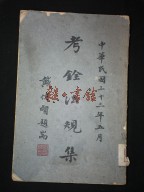 中華民國十二年五月
考銓法規集
戴傳賢題耑